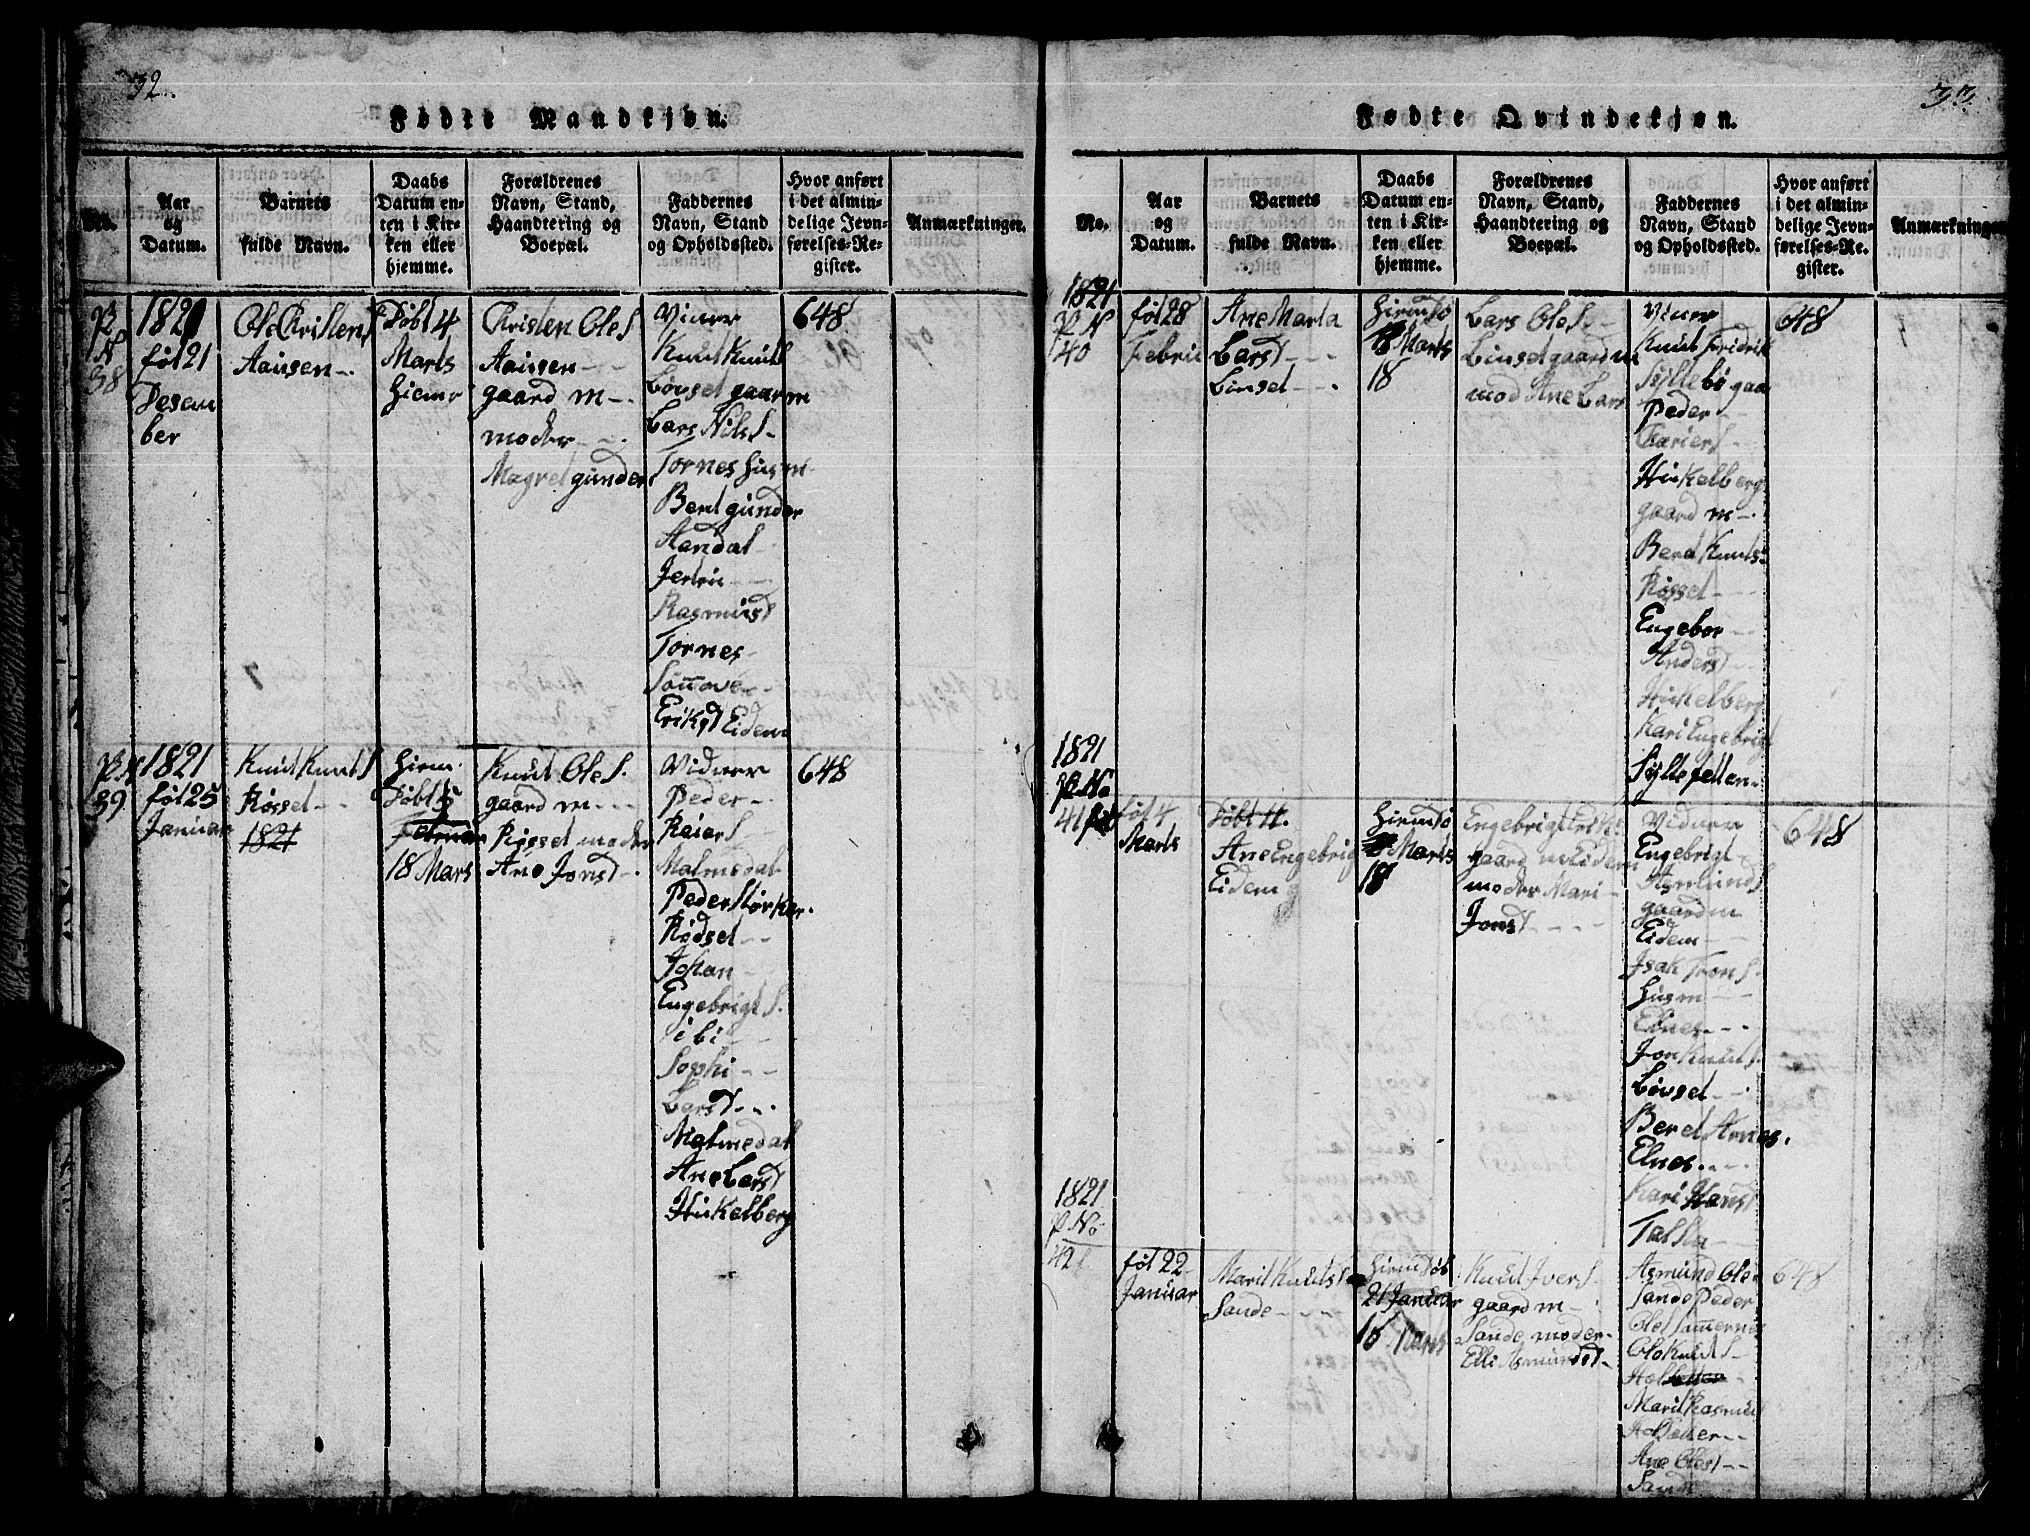 32.
Fødte Mandkjøn.
No.
Aar
og
Datum.
Barnets
fulde Navn.
Daabs
Datum en-
ten i Kir-
ken eller
hjemme.
Forældrenes
Navn, Stand,
Haandtering og
Boepæl.
Faddernes
Navn, Stand
og Opholdssted.
Hvor anført
i det almin-
delige Jevn-
førelses-Re-
gister.
Anmærkninger.
38
1821
føt 21
Desem
ber
Ole Christens
Aausen
Döbt 4
Marts
Hiemr
Christen OleS.
Aausen
gaard m
moder
Magret gunder
Vinnr
Knut Knuts
Lovset gaarm
Lars NilsS
Tornes Husm
Berit gunder
Aandal
Jertru
Rasmusd
Tornes
Eriksd Eidem
648
P N
39
1821
føt 25
Januar
Knut KnutS
Røsset
1821
Hiem
Döbt 5
Februar
18 Mars
Knut OleS.
gaard m
Røsset moder
Ane Jonsd
Vidner
Peder
RaierS
Malmedal
Peder Størker.
Rödset
Johan
EngebrigtS.
i bi
Sophi
Larsd
Malmedal
Ane Larsd
Hukelberg
648
33
Fødte Qvindekjøn.
No.
Aar
og
Datum.
Barnets
fulde Navn.
Daabs
Datum en-
ten i Kir-
ken eller
hjemme.
Forældrenes
Navn, Stand,
Haandtering og
Boepæl.
Faddernes
Navn, Stand
og Opholdssted.
Hvor anført
i det almin-
delige Jevn-
førelses-Re-
gister.
Anmærkninger
1821
P N
40
føt 28
Februa
Ane Marta
Larsd
Linset
Hiemdö
Marts
18
Lars OleS.
Linset gaardm
mod Ane Lars
Vinnr
Knut Fridrik
Syllebö gaa
Peder
Hukelberg
gaard m
Berat Knuts
Røsset
Engebor
Andersd
Hukelberg
Kari Engebrig
Syltesetten
648
1821
P No
41
føt 4
Marts
Döbt 4.
Ane Engebrig
Eidem
Hiemdö
Marts
18
Engebrigt Eriks
gaard m Eidem
moder Mari
Jonsd
Vidner
Engebrigt
AsmundS
gaardm
Eidem
Isak TronS.
Husm
Elnes
Jon KnutS.
Lövset
Beret Arnes.
Elnes.
Kari Hansd
648
1821
P No
42
føt 22
Januar
Marit Knutsd
Sande
Hiemdöb
21 Januar
18 Mars
Knut IverS.
gaard m
Sande moder
Elli Asmundsd
Asmund Ole
Sande Peder
Ole Knuts
Marit Rasmus
Ane Olesd
Sand
648